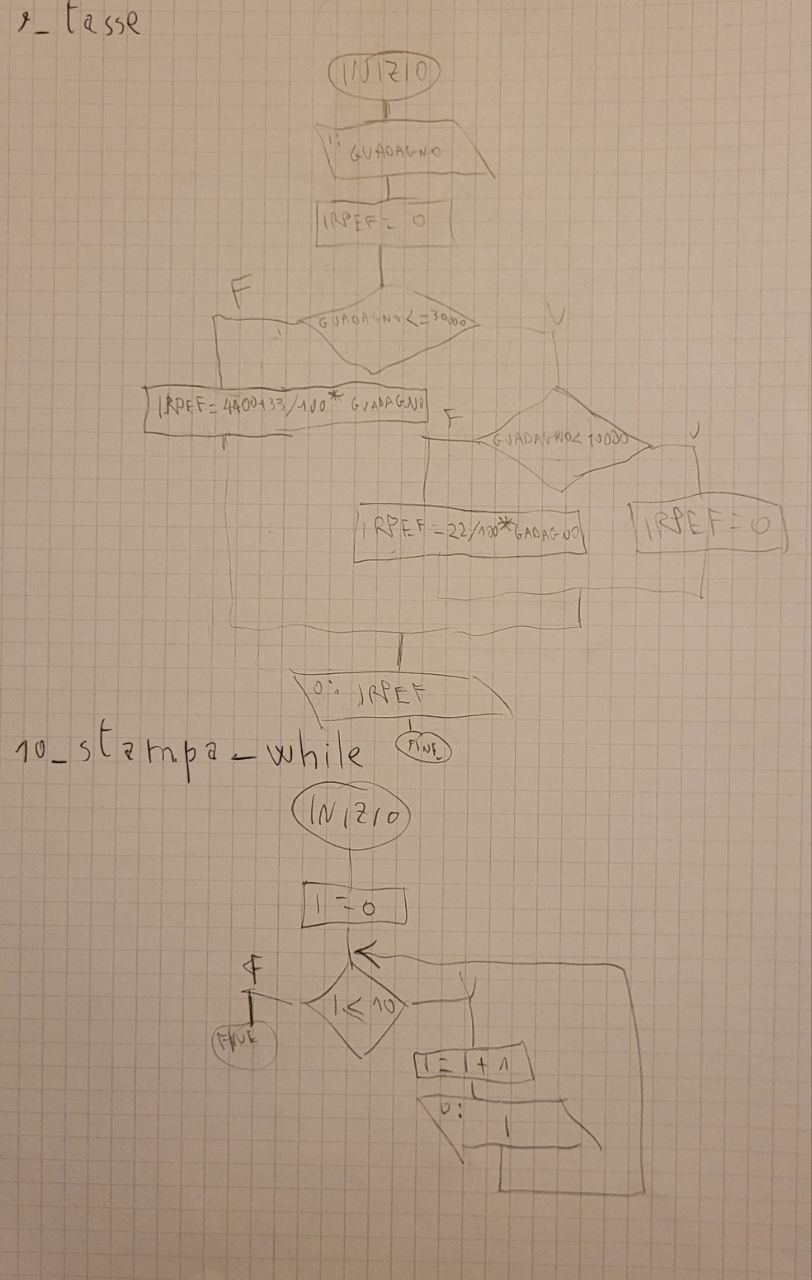 9_tasse
INIZIO
I: GUADAGNO
IRPEF = 0
F
GUADAGNO <= 30000
V
IRPEF = 4400+33/100* GUADAGNO
F
GUADAGNO < 10000
V
IRPEF = 22/100*GADAGNO
IRPEF = 0
O: IRPEF
FINE
10_stampa_while
INIZIO
I = 0
F
I < 10
V
FINE
I = I + 1
O: I